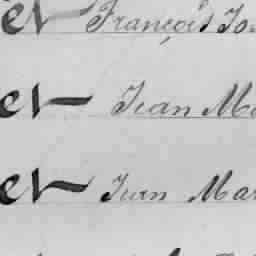 er François Jo
er Jean Ma
er Jean Mar